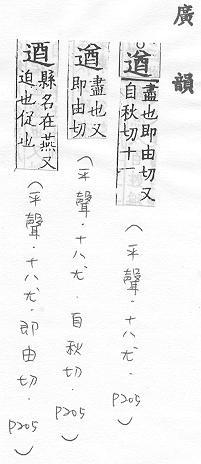 廣韻
遒 盡也即由切又自秋切十一
（平聲．十八尤．P205）
遒 盡也又即由切
（平聲．十八尤．自秋切．P205）
遒 縣名在燕又迫也促也
（平聲．十八尤．即由切．P205）